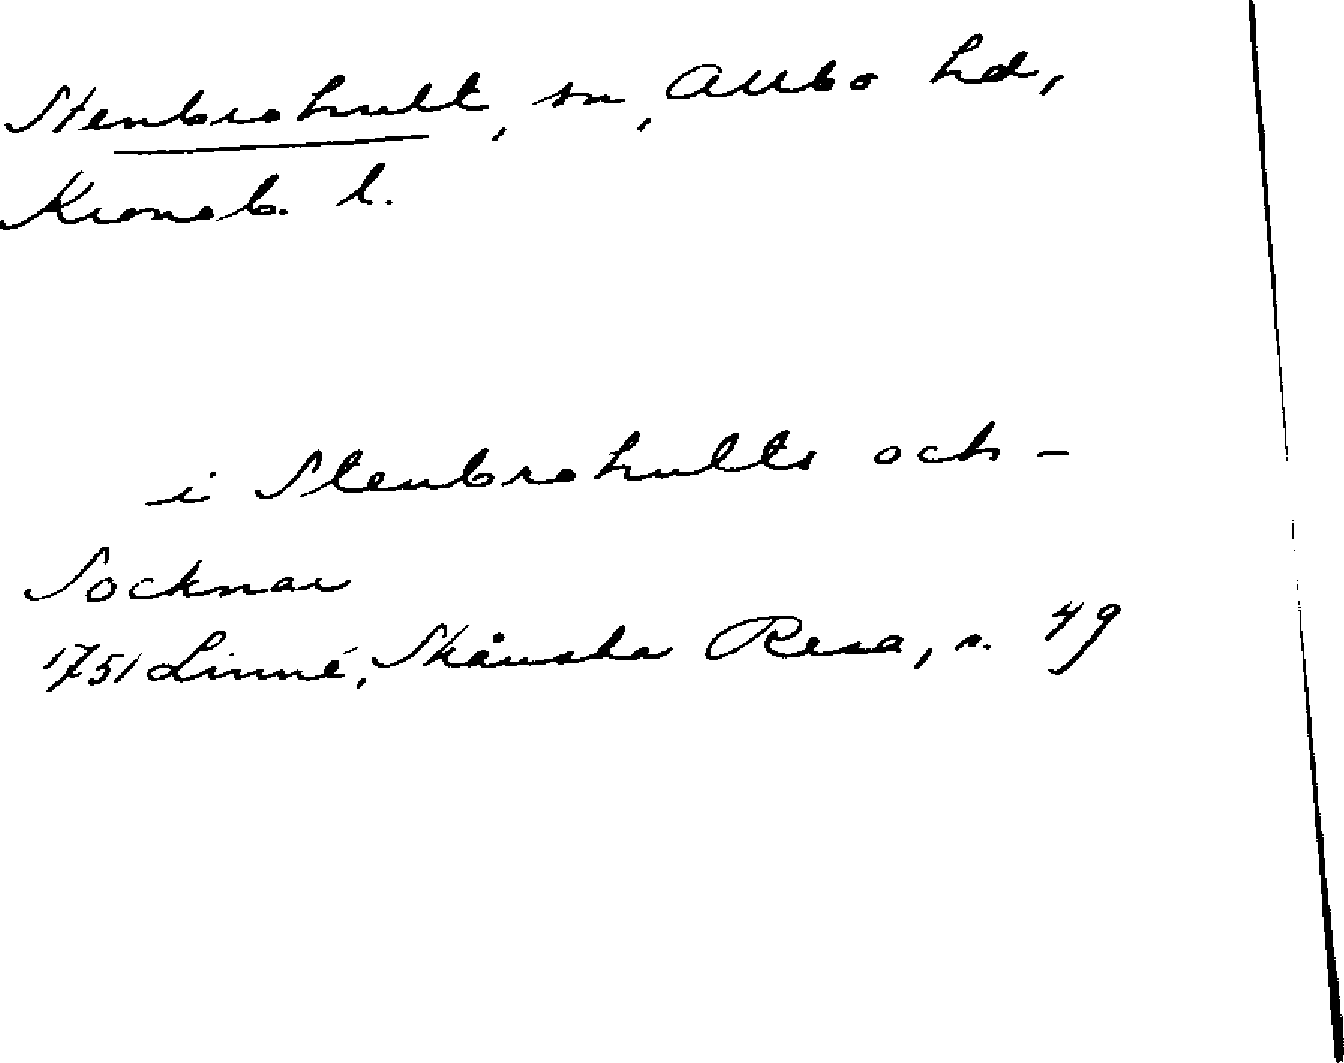 Stenbrohult, sn, Allbo hd,
Kronob. l.
i Stenbrohults och –
Socknar
1751 Linné, Skånska Resa, s. 49